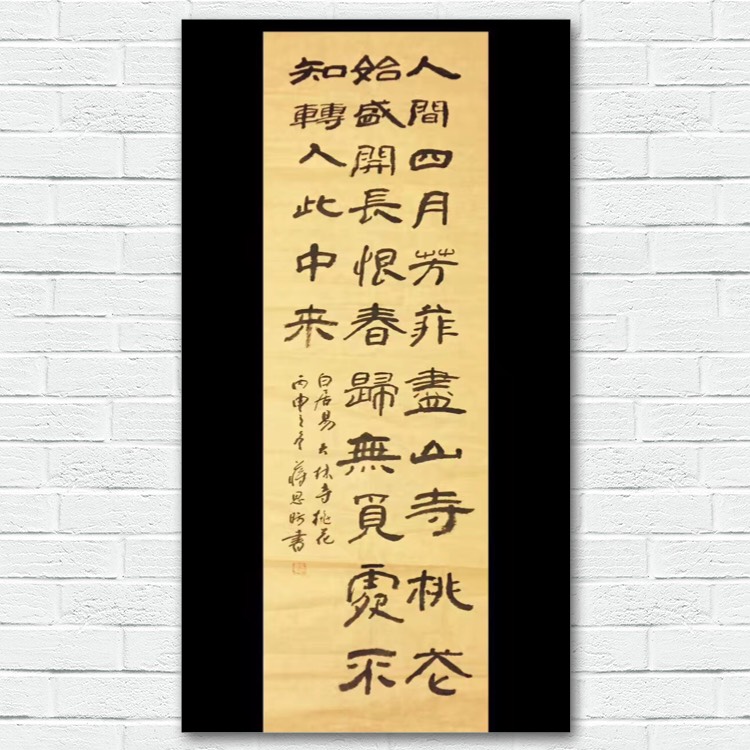 人間四月芳菲盡山寺桃花
始盛開長恨春歸無覓處不
知轉入此中来
白居易大林寺桃花
丙申之冬蔣思書